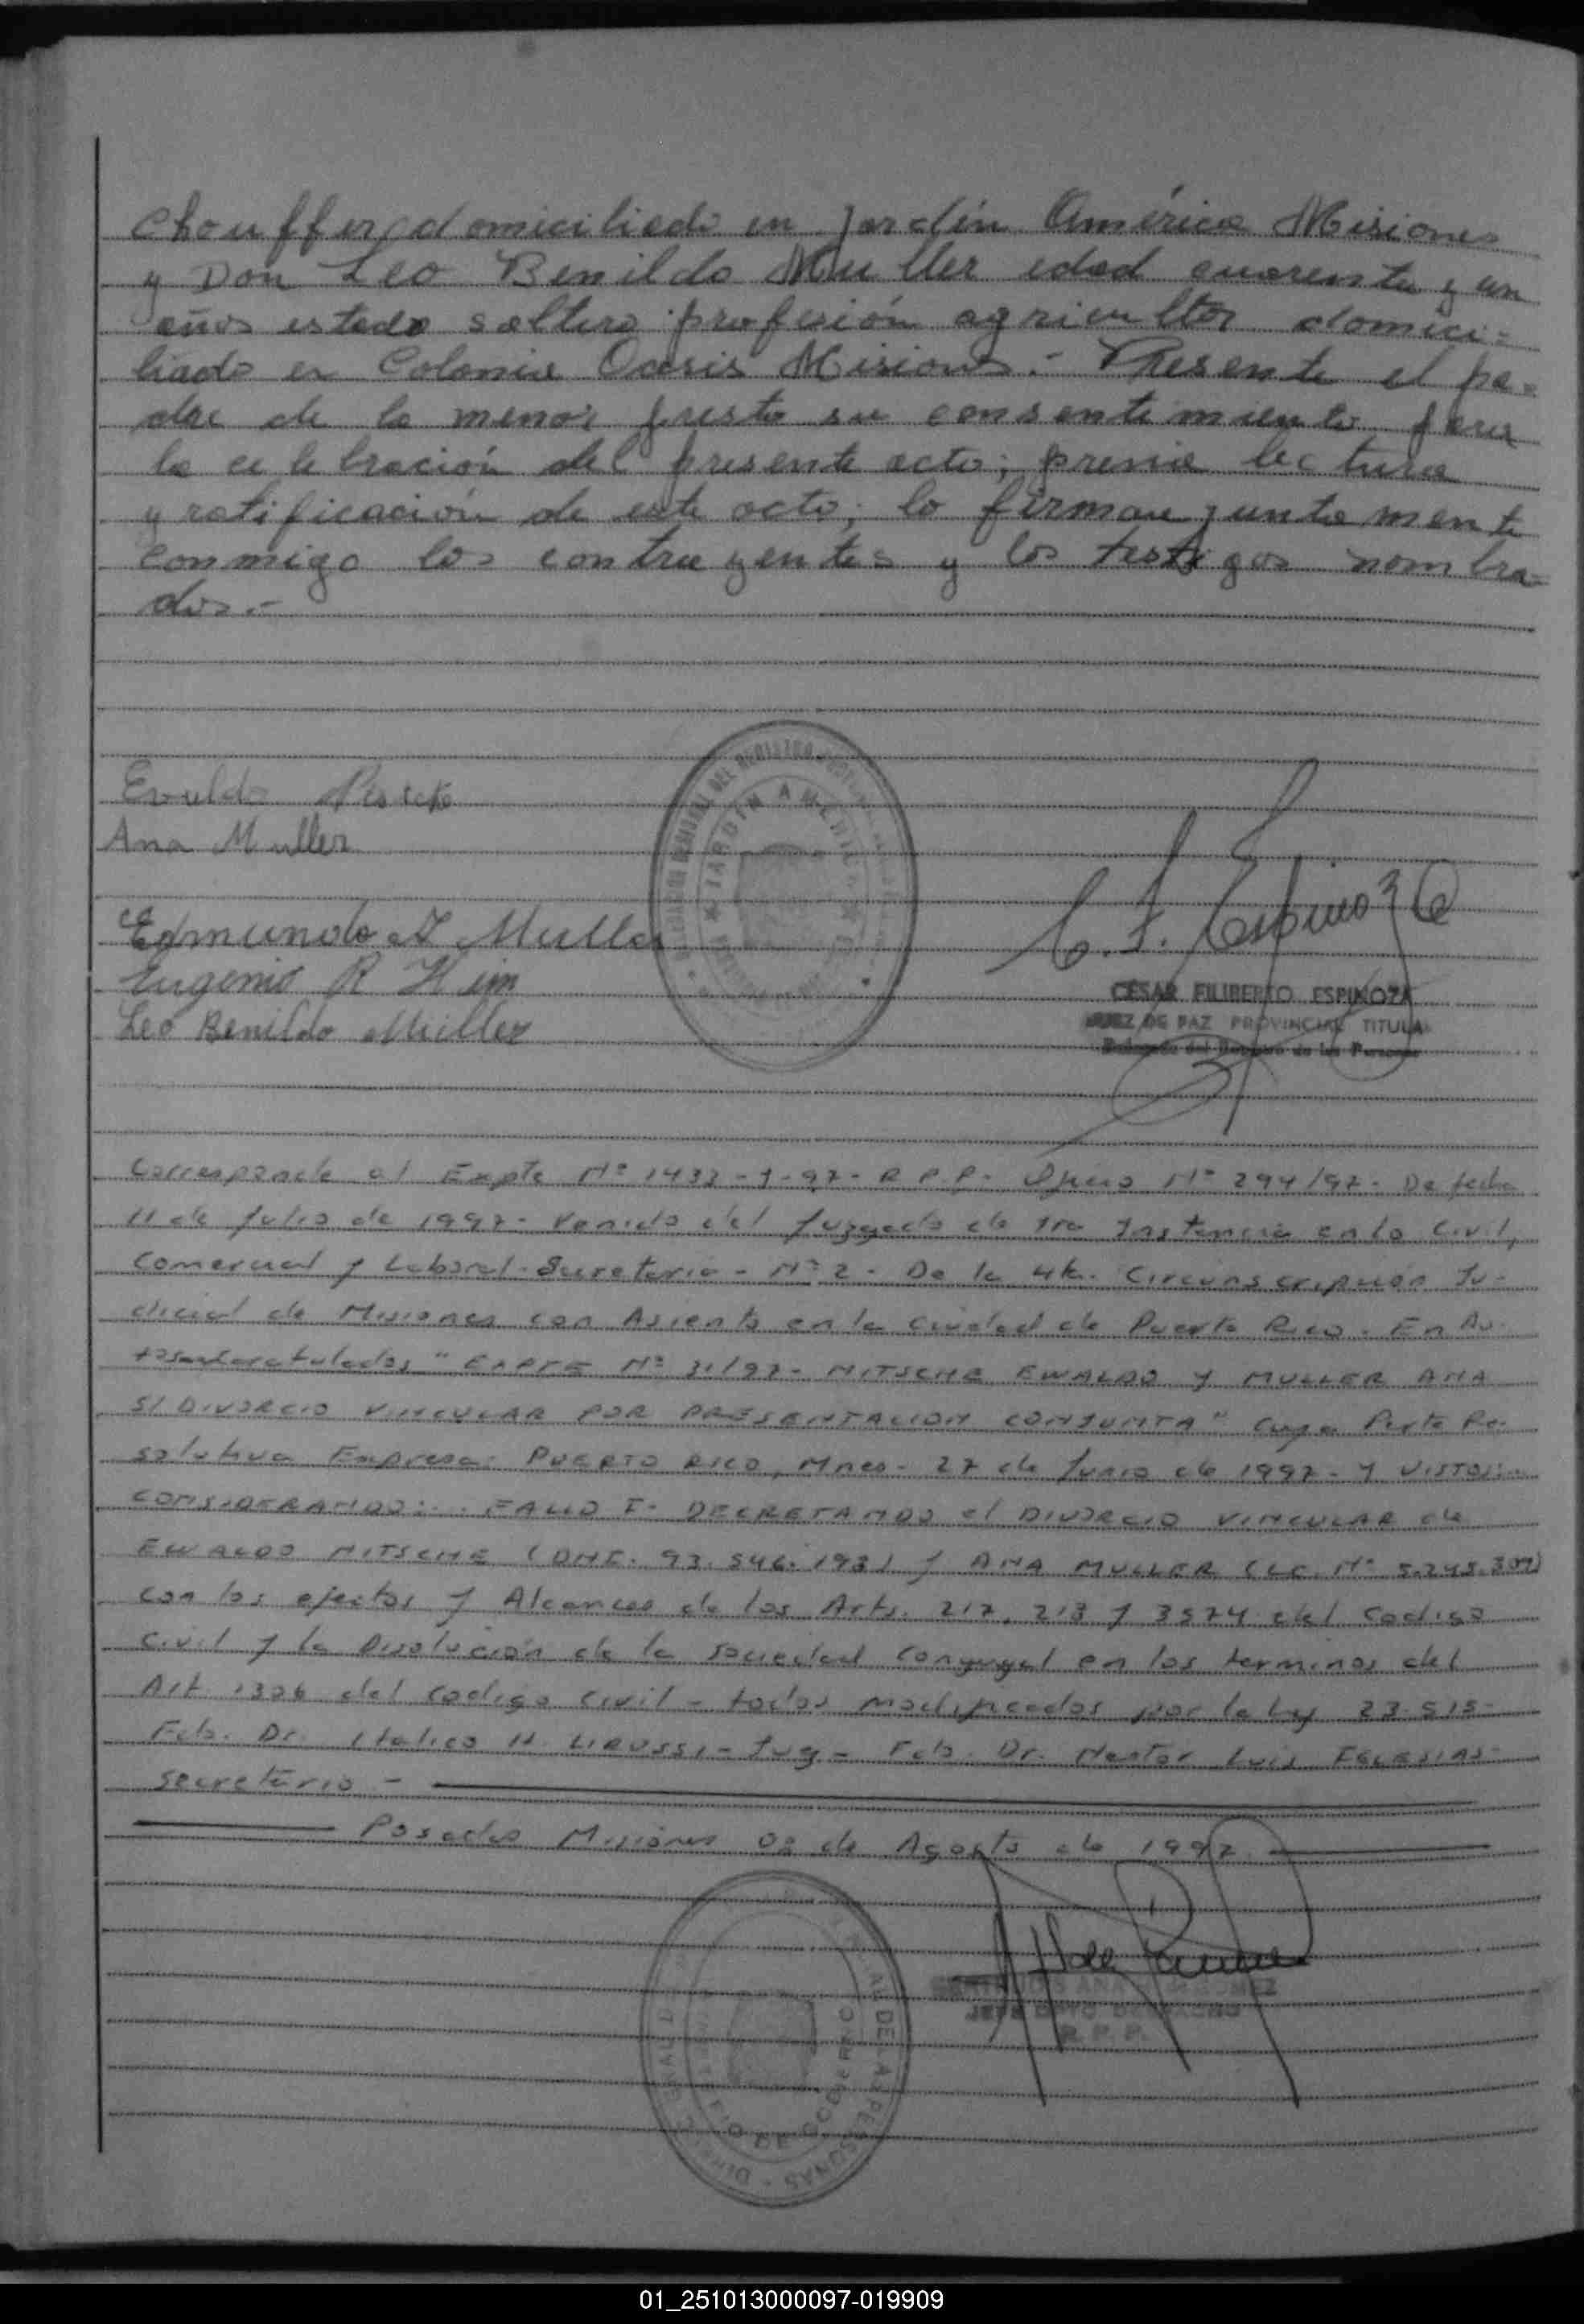 Chouffer domiciliado en Jardín América Misiones
y Don Leo Benildo Muller edad cuarenta y un
años estado soltero profesión agricultor domici-
liado en Colonia Oasis Misiones.- Presente el pa-
dre de la menor presta su consentimiento para
la celebración del presente acto; previa lectura
y ratificación de este acto; lo firman juntamente
conmigo los contrayentes y los testigos nombra-
dos.-
Evaldo
Ana Muller
Edmundo Muller
Eugenio R
Leo Benildo Müller
JARDIN AMERICA
C. F. Espinoza
CESAR FILIBERTO ESPINOZA
JUEZ DE PAZ PROVINCIAL TITULAR
Delegado del Registro de las Personas
Corresponde al Expte Nº 1432-J-97- R.P.P. Oficio Nº 294/97- De fecha
11 de Julio de 1997- Venido del Juzgado de 1ra Instancia en lo Civil,
Comercial y Laboral- Secretaria - Nº 2 - De la 4ta. Circunscripción Ju-
dicial de Misiones con Asiento en la Ciudad de Puerto Rico. En Au-
tos caratulados "EXPTE Nº 31/97- NITSCHE EWALDO Y MULLER ANA
S/ DIVORCIO VINCULAR POR PRESENTACION CONJUNTA" Cuya Parte Re-
solutiva Expresa: PUERTO RICO, Mnes- 27 de Junio de 1997- Y VISTOS:..
CONSIDERANDO:.. FALLO I- DECRETANDO el DIVORCIO VINCULAR de
EWALDO NITSCHE (DNI. 93.546.198) y ANA MULLER (LC. Nº 5.245.309)
con los efectos y Alcances de los Arts. 217, 218 y 3574 del Codigo
Civil y la Disolución de la sociedad conyugal en los terminos del
Art. 1306 del codigo civil - todos modificados por la Ley 23.515-
Fdo. Dr. Italico H. LIRUSSI - Juez - Fdo. Dr. Nestor Luis IGLESIAS-
Secretario -
Posadas Misiones 08 de Agosto de 1997
DE LAS PERSONAS
DE GOBIERNO
R. P. P.
01_251013000097-019909